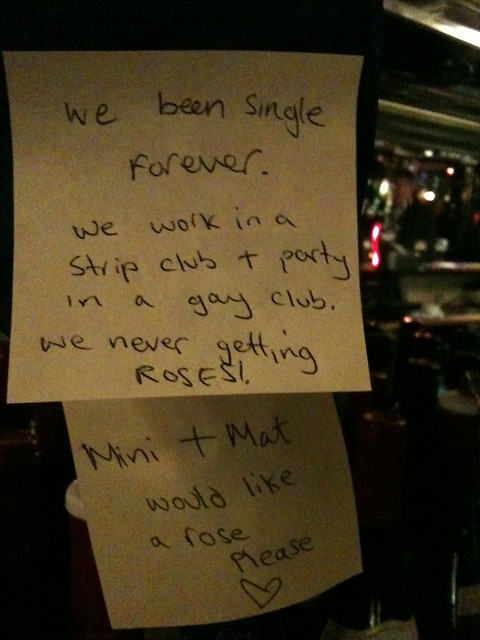 We been single
Forever.
We work in a
Strip club + party
in a gay club.
We never getting
ROSES!.
Mini + Mat
would like
a rose
Please